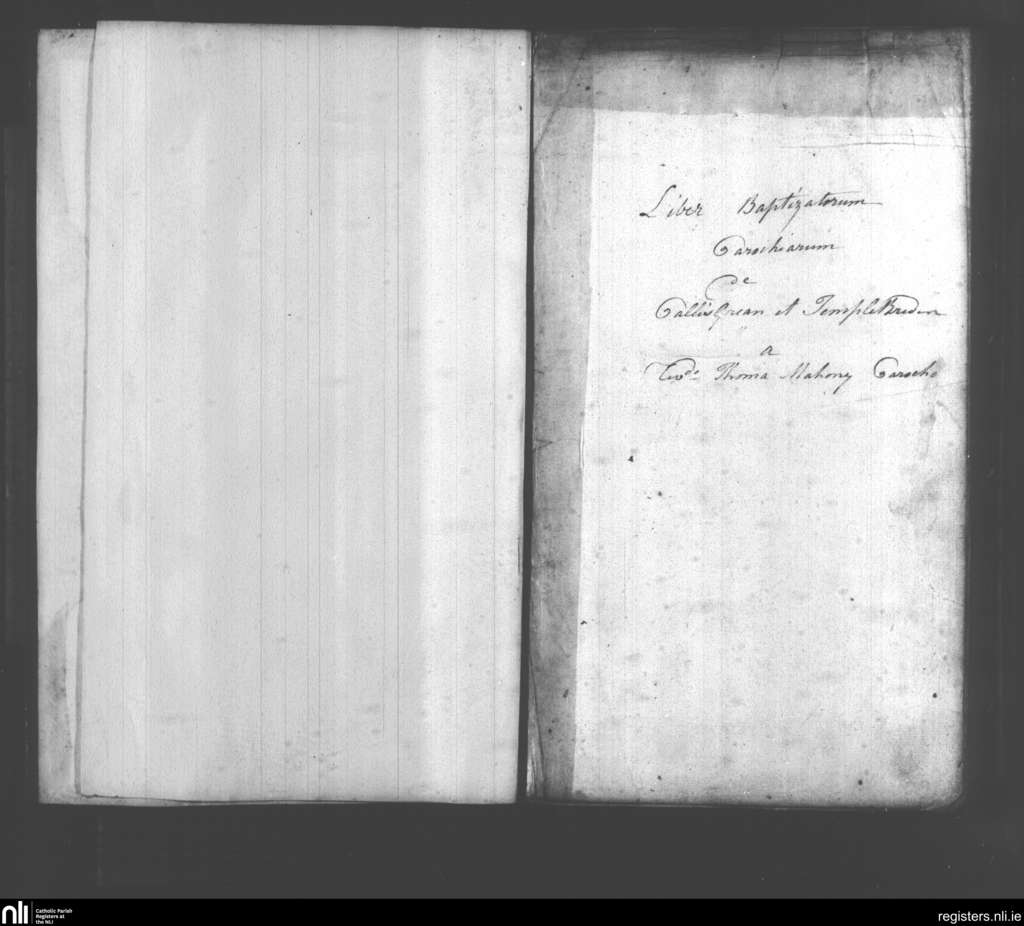 Liber Baptizatorum
Parochiarum
de
PallisGrean et TempleBreden
a
Revdo Thoma Mahony Parocho
nli
Catholic Parish
Registers at
the NLI
registers.nli.ie